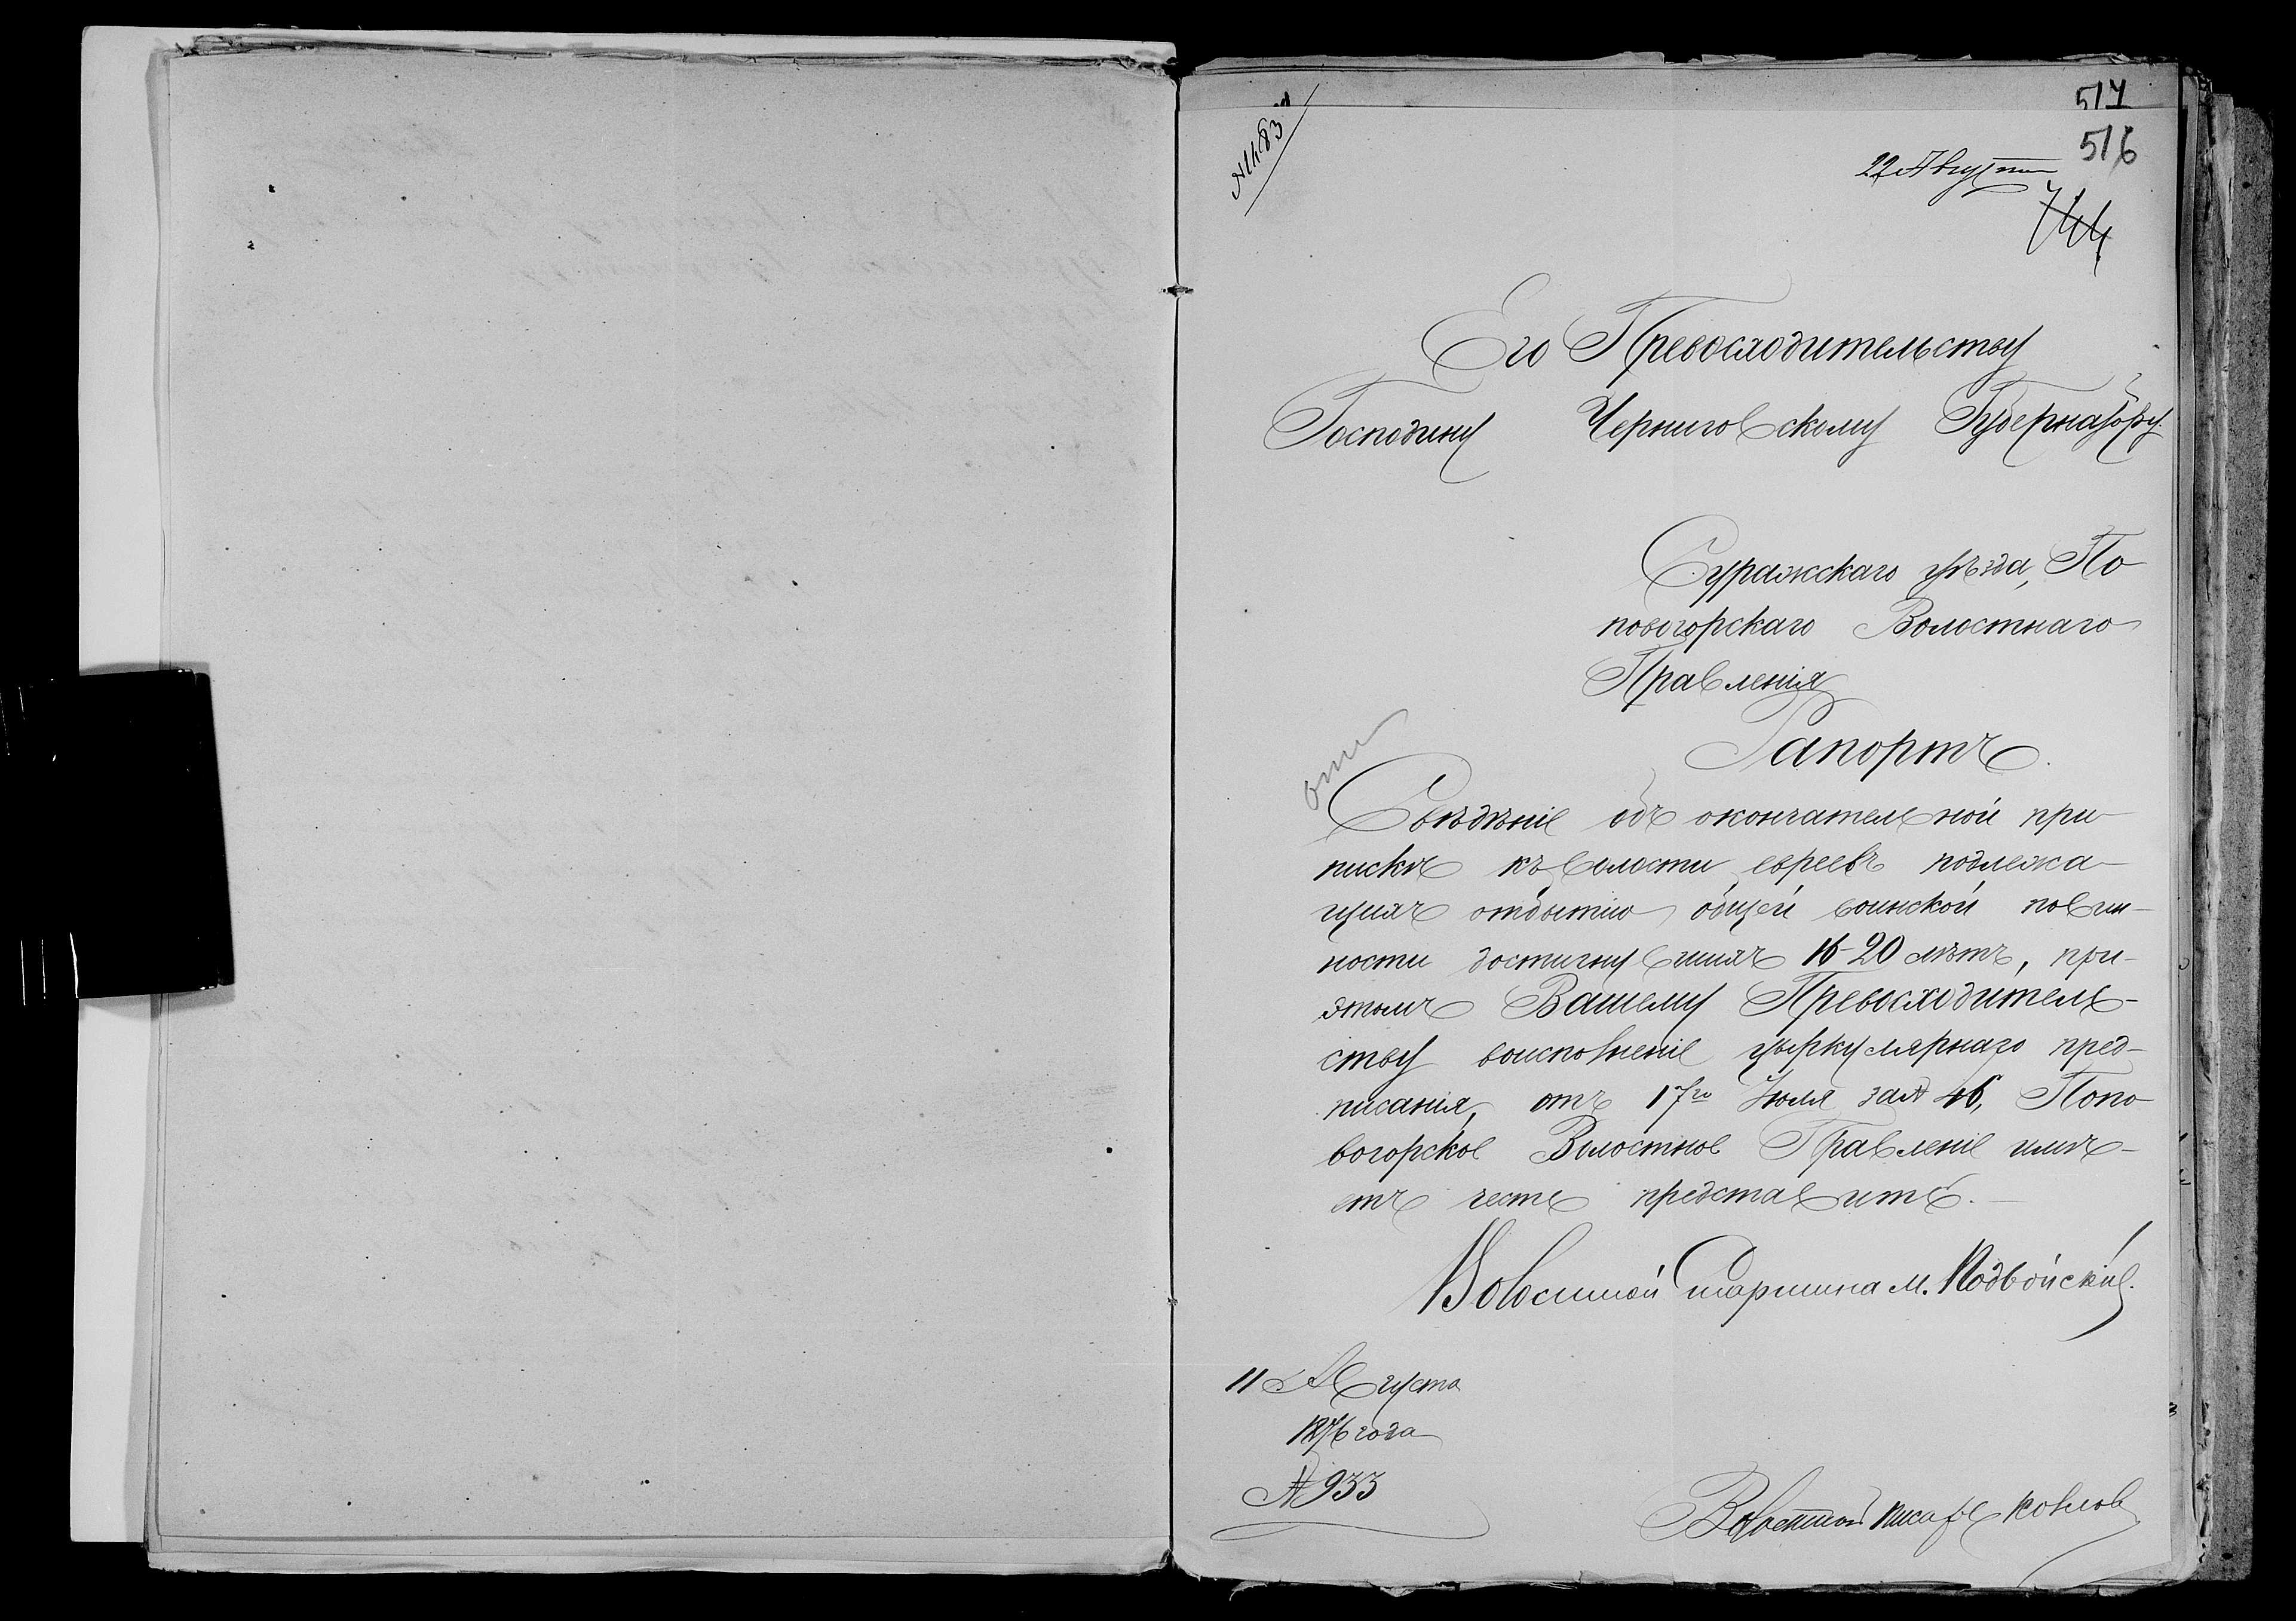 517
516
22 Августа
744
Его Превосходительству
Господину Черниговскому Губернатору.
Суражскаго уѣзда, По-
повогорскаго Волостнаго
Правленія
Рапортъ.
Свѣдѣніе объ окончательной при-
пискѣ къ волости евреевъ подлежа-
щихъ отбытію общей воинской повин-
ности достигнувшихъ 16-20 лѣтъ, при-
этомъ Вашему Превосходитель-
ству воисполненіе цыркулярнаго пред-
писанія, отъ 17го Июля за № 46, Попо-
вогорское Волостное Правленіе имѣ-
етъ честь представить.
Волостной старшина М. Подвойскій.
11 Августа
1876 года
№ 933
Волостной писарь